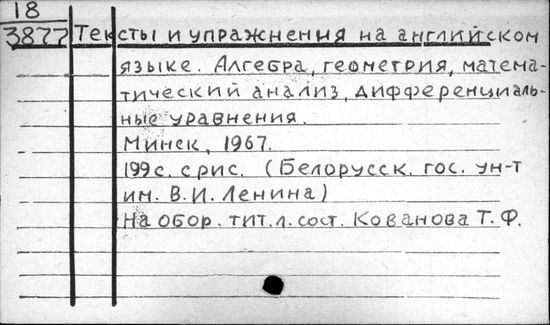 18
3877 Тексты и упражнения на английском
языке. Алгебра, геометрия, матема-
тический анализ, дифференциаль-
ные уравнения.
Минск, 1967.
199 с. с рис. (Белорусск. гос. ун-т
им. В.И. Ленина)
На обор. тит. л. сост. Кованова Т. Ф.